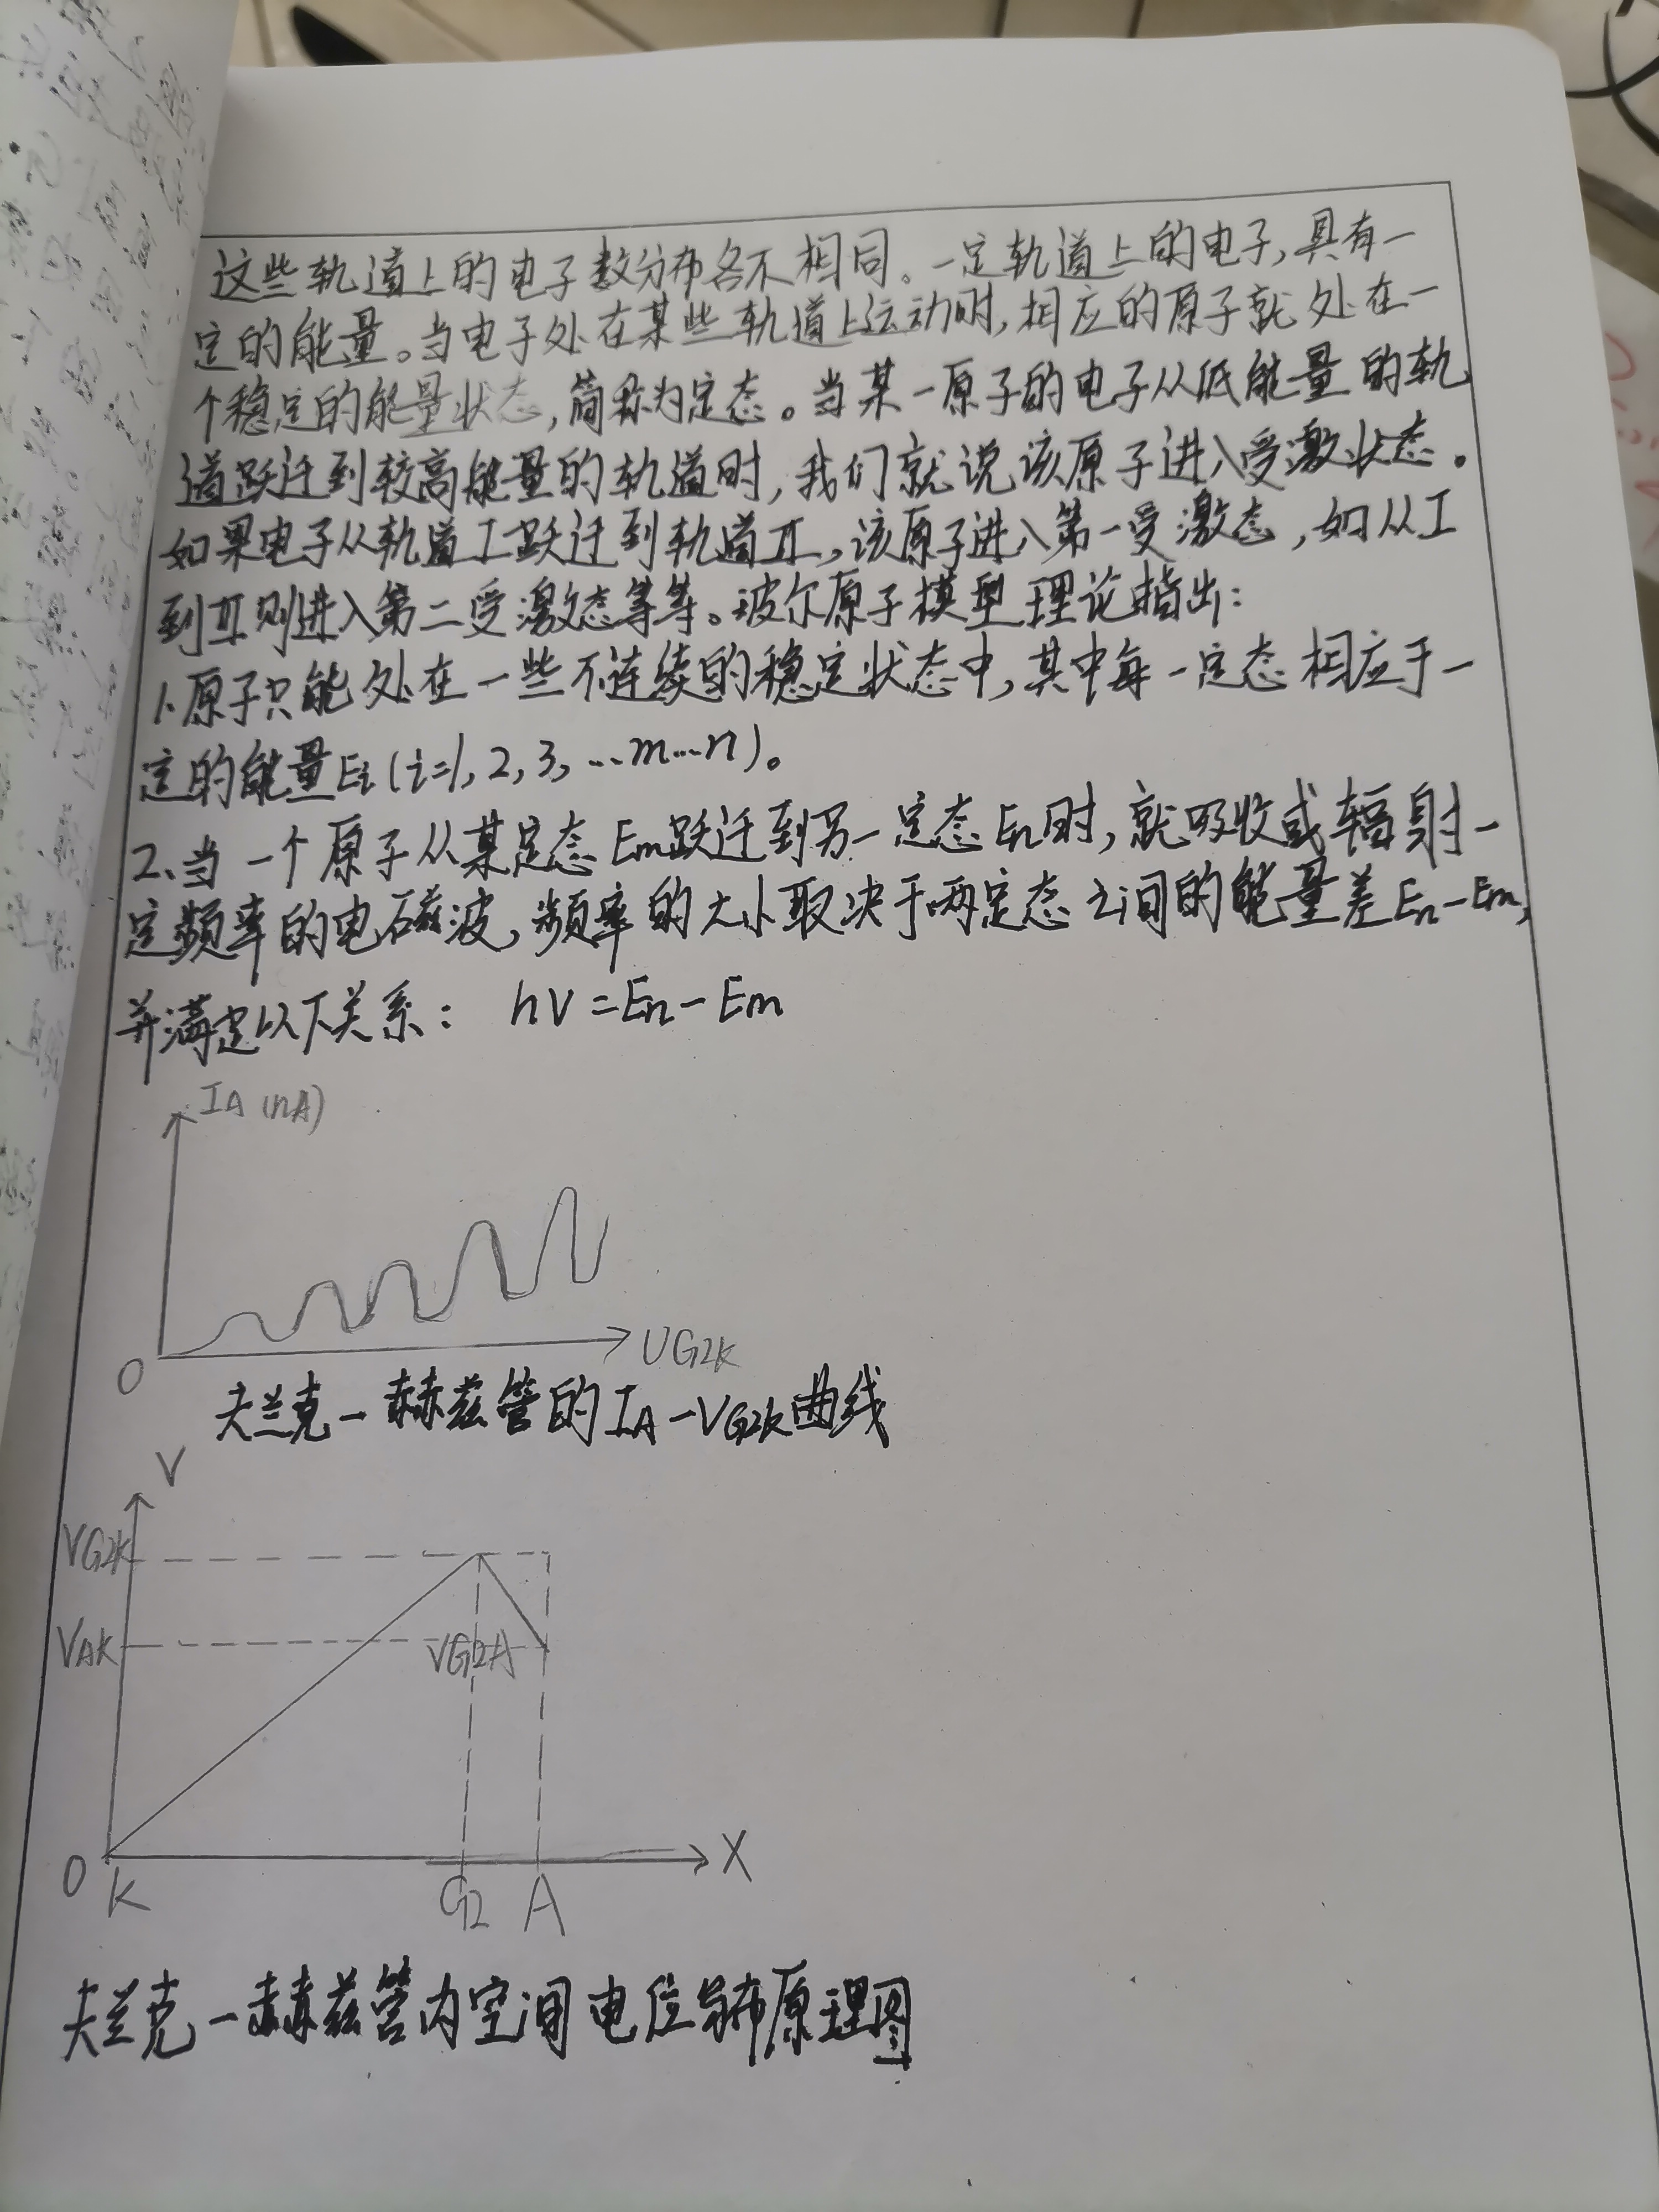 这些轨道上的电子数分布各不相同。一定轨道上的电子,具有一
定的能量。当电子处在某些轨道上运动时,相应的原子就处在一
个稳定的能量状态,简称为定态。当某一原子的电子从低能量的轨
道跃迁到较高能量的轨道时,我们就说该原子进入受激状态。
如果电子从轨道I跃迁到轨道II,该原子进入第一受激态,如从I
到II则进入第二受激态等等。玻尔原子模型理论指出:
1.原子只能处在一些不连续的稳定状态中,其中每一定态相应于一
定的能量Ei(i=1,2,3,…m…n)。
2、当一个原子从某定态Em跃迁到另一定态En时,就吸收或辐射一
定频率的电磁波,频率的大小取决于两定态之间的能量差En-Em,
并满足以下关系: hV=En-Em
IA (nA)
O
UG2K
夫兰克-赫兹管的IA-VG2K曲线
V
VG2K
VAK
VG2A
O
K
G2
A
X
夫兰克-赫兹管内空间电位分布原理图